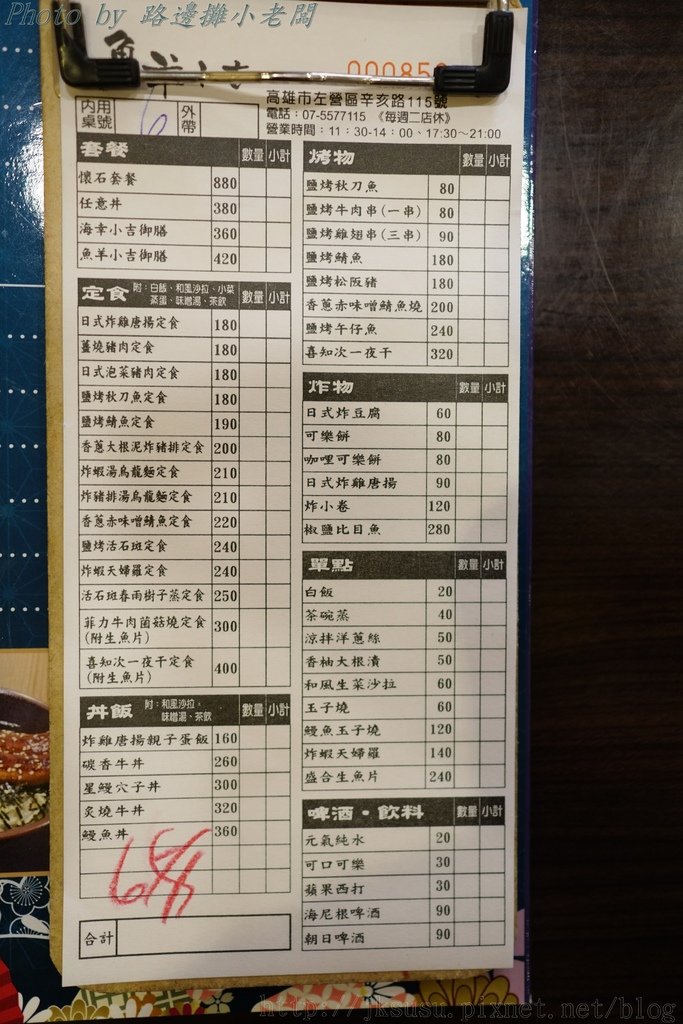 Photo by 路邊攤小老闆
000850
高雄市左營區辛亥路115號
電話：07-5577115 《每週二店休》
營業時間：11：30-14：00、17:30～21:00
內用桌號 6 外帶
套餐 數量 小計
懷石套餐 880
任意丼 380
海幸小吉御膳 360
魚羊小吉御膳 420
定食 附：白飯、和風沙拉、小菜 數量 小計
蒸蛋、味噌湯、茶飲
日式炸雞唐揚定食 180
薑燒豬肉定食 180
日式泡菜豬肉定食 180
鹽烤秋刀魚定食 180
鹽烤鯖魚定食 190
香蔥大根泥炸豬排定食 200
炸蝦湯烏龍麵定食 210
炸豬排湯烏龍麵定食 210
香蔥赤味噌鯖魚定食 220
鹽烤活石斑定食 240
炸蝦天婦羅定食 240
活石斑春雨樹子蒸定食 250
菲力牛肉菌菇燒定食 300
(附生魚片)
喜知次一夜干定食 400
(附生魚片)
丼飯 附：和風沙拉、 數量 小計
味噌湯、茶飲
炸雞唐揚親子蛋飯 160
碳香牛丼 260
星鰻穴子丼 300
炙燒牛丼 320
鰻魚丼 360
合計
烤物 數量 小計
鹽烤秋刀魚 80
鹽烤牛肉串(一串) 80
鹽烤雞翅串(三串) 90
鹽烤鯖魚 180
鹽烤松阪豬 180
香蔥赤味噌鯖魚燒 200
鹽烤午仔魚 240
喜知次一夜干 320
炸物 數量 小計
日式炸豆腐 60
可樂餅 80
咖哩可樂餅 80
日式炸雞唐揚 90
炸小卷 120
椒鹽比目魚 280
單點 數量 小計
白飯 20
茶碗蒸 40
涼拌洋蔥絲 50
香柚大根漬 50
和風生菜沙拉 60
玉子燒 60
鰻魚玉子燒 120
炸蝦天婦羅 140
盛合生魚片 240
啤酒・飲料 數量 小計
元氣純水 20
可口可樂 30
蘋果西打 30
海尼根啤酒 90
朝日啤酒 90
http://jksusu.pixnet.net/blog